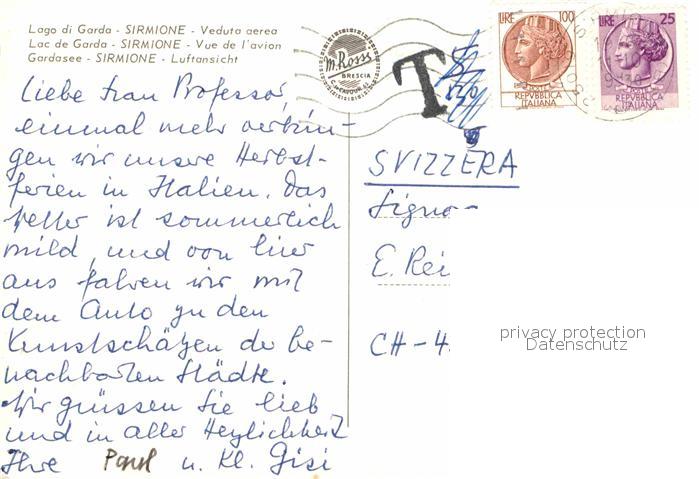 Lago di Garda - SIRMIONE - Veduta aerea
Lac de Garda - SIRMIONE - Vue de l'avion
Gardasee - SIRMIONE - Luftansicht
m. Rossi
BRESCIA
T
LIRE 100
POSTE
REPVBBLICA
ITALIANA
LIRE 25
POSTE
REPVBBLICA
ITALIANA
Liebe Frau Professor,
einmal mehr verbrin-
gen wir unsere Herbst-
ferien in Italien. Das
Wetter ist sommerlich
mild, und von hier
aus fahren wir mit
dem Auto zu den
Kunstschätzen der be-
nachbarten Städte.
Wir grüssen Sie lieb
und in aller Herzlichkeit
Ihre Paul u. Kl. Gisi
SVIZZERA
Signo-
E. Rei
CH - 4
privacy protection
Datenschutz